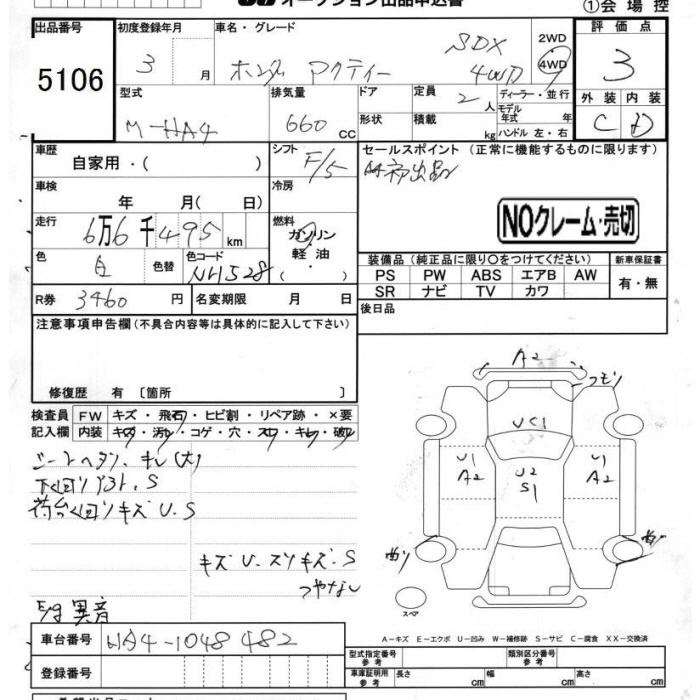 オークション出品申込書 ①会場控
出品番号 初度登録年月 車名・グレード 評価点
5106 3 月 ホンダ アクティー SDX 4WD 2WD ・ 4WD 3
型式 排気量 ドア 定員 2 人 ディーラー・並行 外装 内装
M-HA4 660 CC 形状 積載 kg モデル年式 年 ハンドル 左・右 C D
車歴 自家用・( ) シフト F/5 セールスポイント (正常に機能するものに限ります)
車検 年 月( 日) 冷房 AA初出品
走行 6万6千495 km 燃料 ガソリン 軽油・( ) NOクレーム・売切
色 白 色替 色コード NH528 装備品(純正品に限り○をつけてください) 新車保証書
PS PW ABS エアB AW 有・無
SR ナビ TV カワ
R券 3460 円 名変期限 月 日 後日品
注意事項申告欄(不具合内容等は具体的に記入して下さい)
修復歴 有 〔箇所 〕
検査員 FW キズ・飛石・ヒビ割・リペア跡・×要
記入欄 内装 キズ・汚レ・コゲ・穴・スレ・キレ・破レ
シートヘタリ、キレ(大)
下回り S
荷台回りキズ U.S
キズ U.スリキズ.S
つやなし
E/g 異音
A2
UC1
U1 A2 U2 S1 U1 A2
曲り 曲り
スペア
A-キズ E-エクボ U-凹み W-補修跡 S-サビ C-腐食 XX-交換済
車台番号 HA4-1048482 型式指定番号 参考 類別区分番号 参考
登録番号 車庫証明用 参考 長さ cm 幅 cm 高さ cm